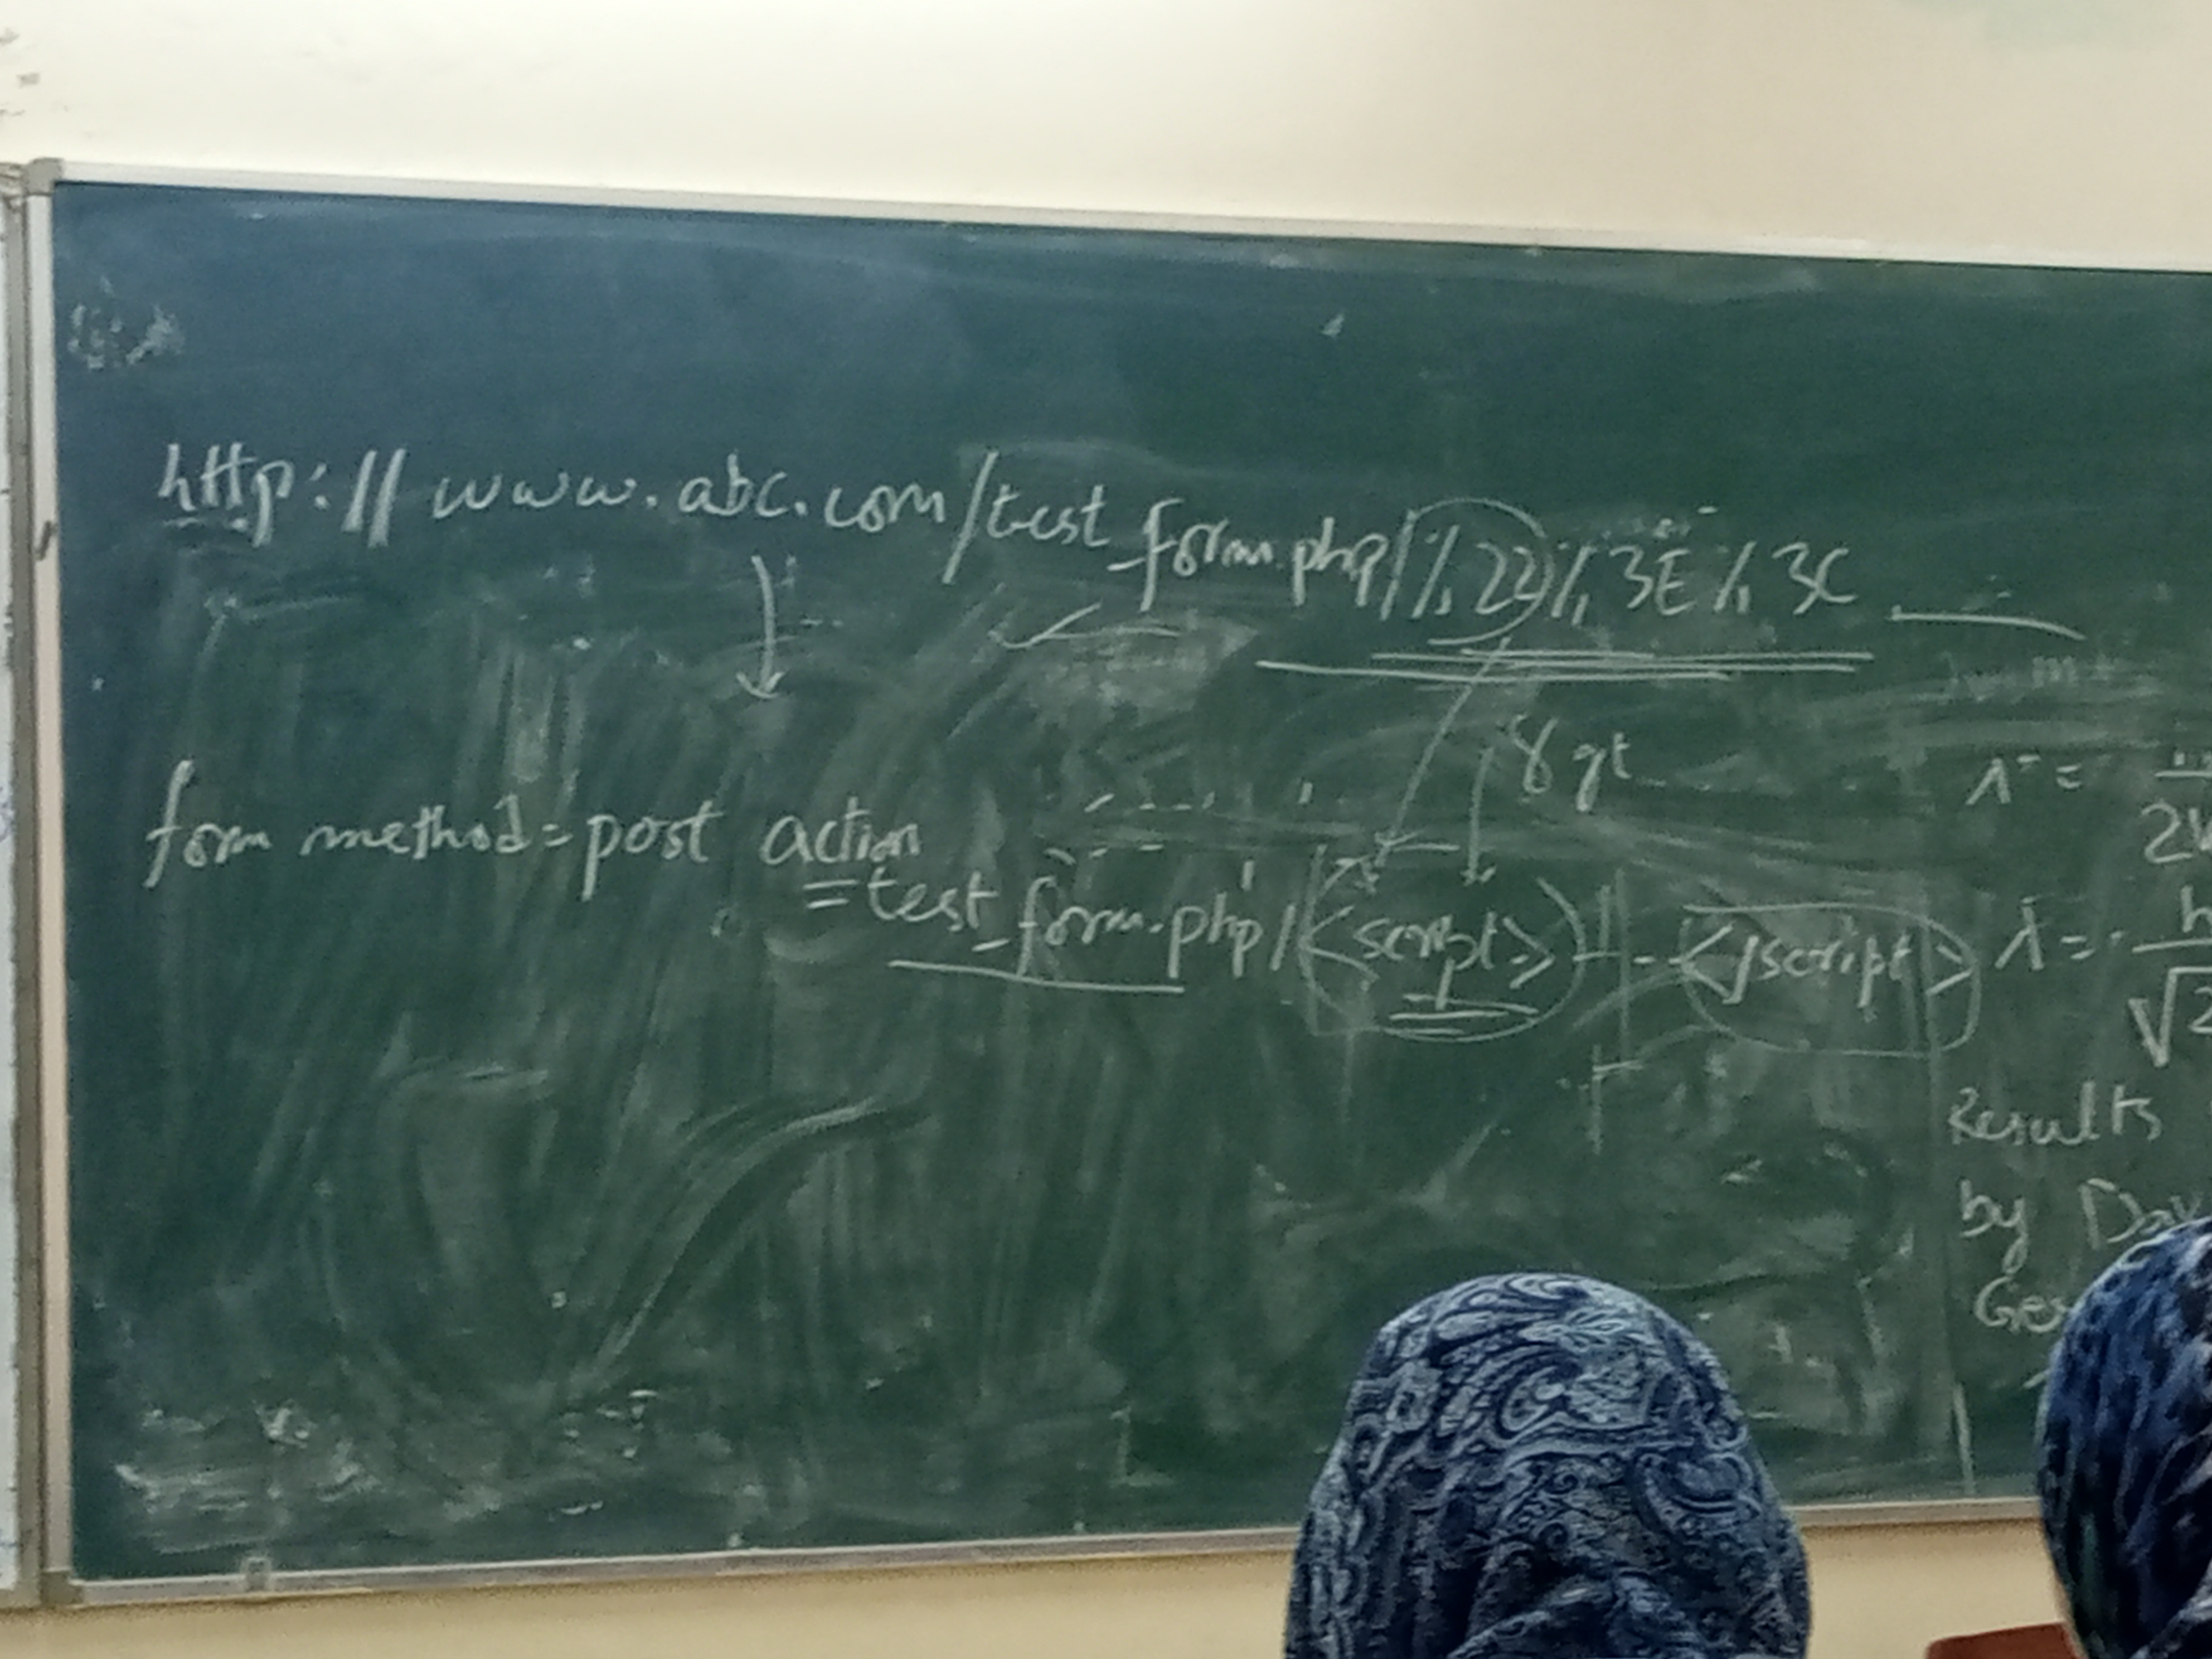 http://www.abc.com/test_form.php/%22%3E%3C
gt
form method=post action
=test_form.php/<script> --- </script>
λ =
2
λ = h
√2
Results
by